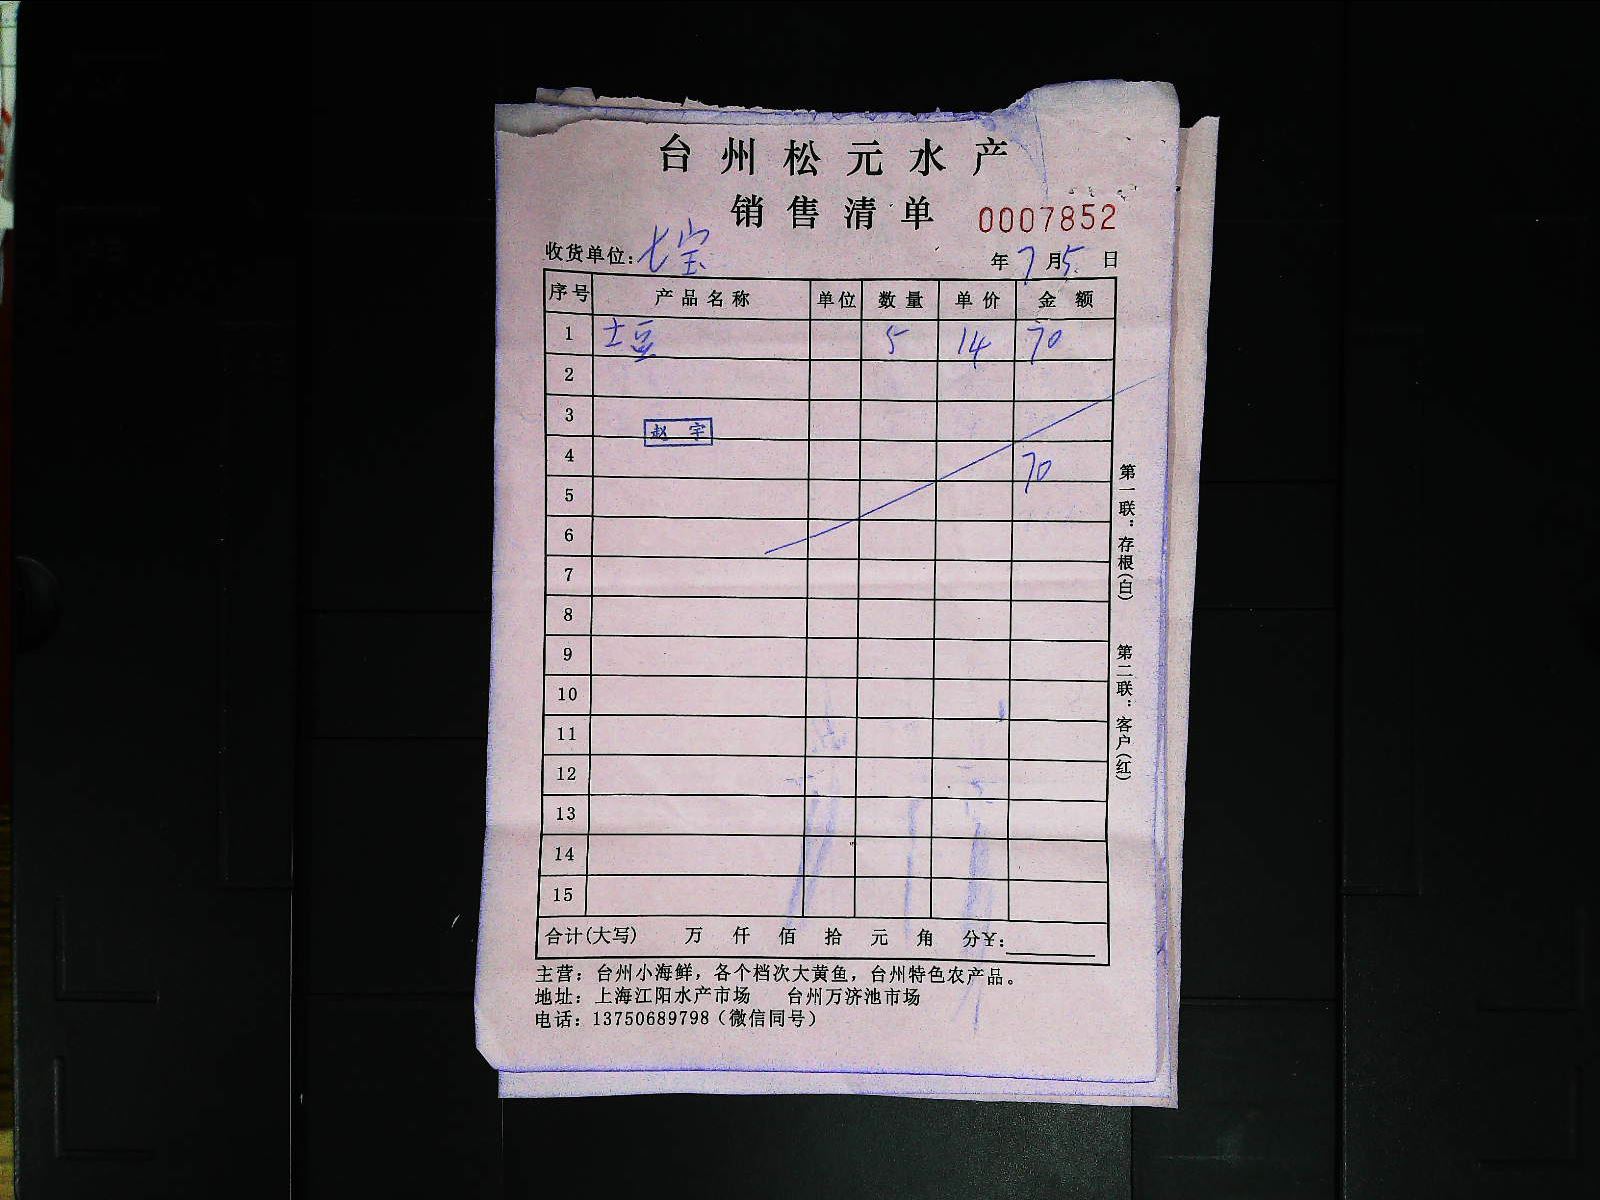 台州松元水产
销售清单 0007852
收货单位: 七宝 年 7 月 5 日
序号 产品名称 单位 数量 单价 金额
1 土豆 5 14 70
2
3
赵宇
4 70
5
6
7
8
9
10
11
12
13
14
15
合计(大写) 万 仟 佰 拾 元 角 分¥:
主营：台州小海鲜，各个档次大黄鱼，台州特色农产品。
地址：上海江阳水产市场 台州万济池市场
电话：13750689798（微信同号）
第一联：存根(白)
第二联：客户(红)